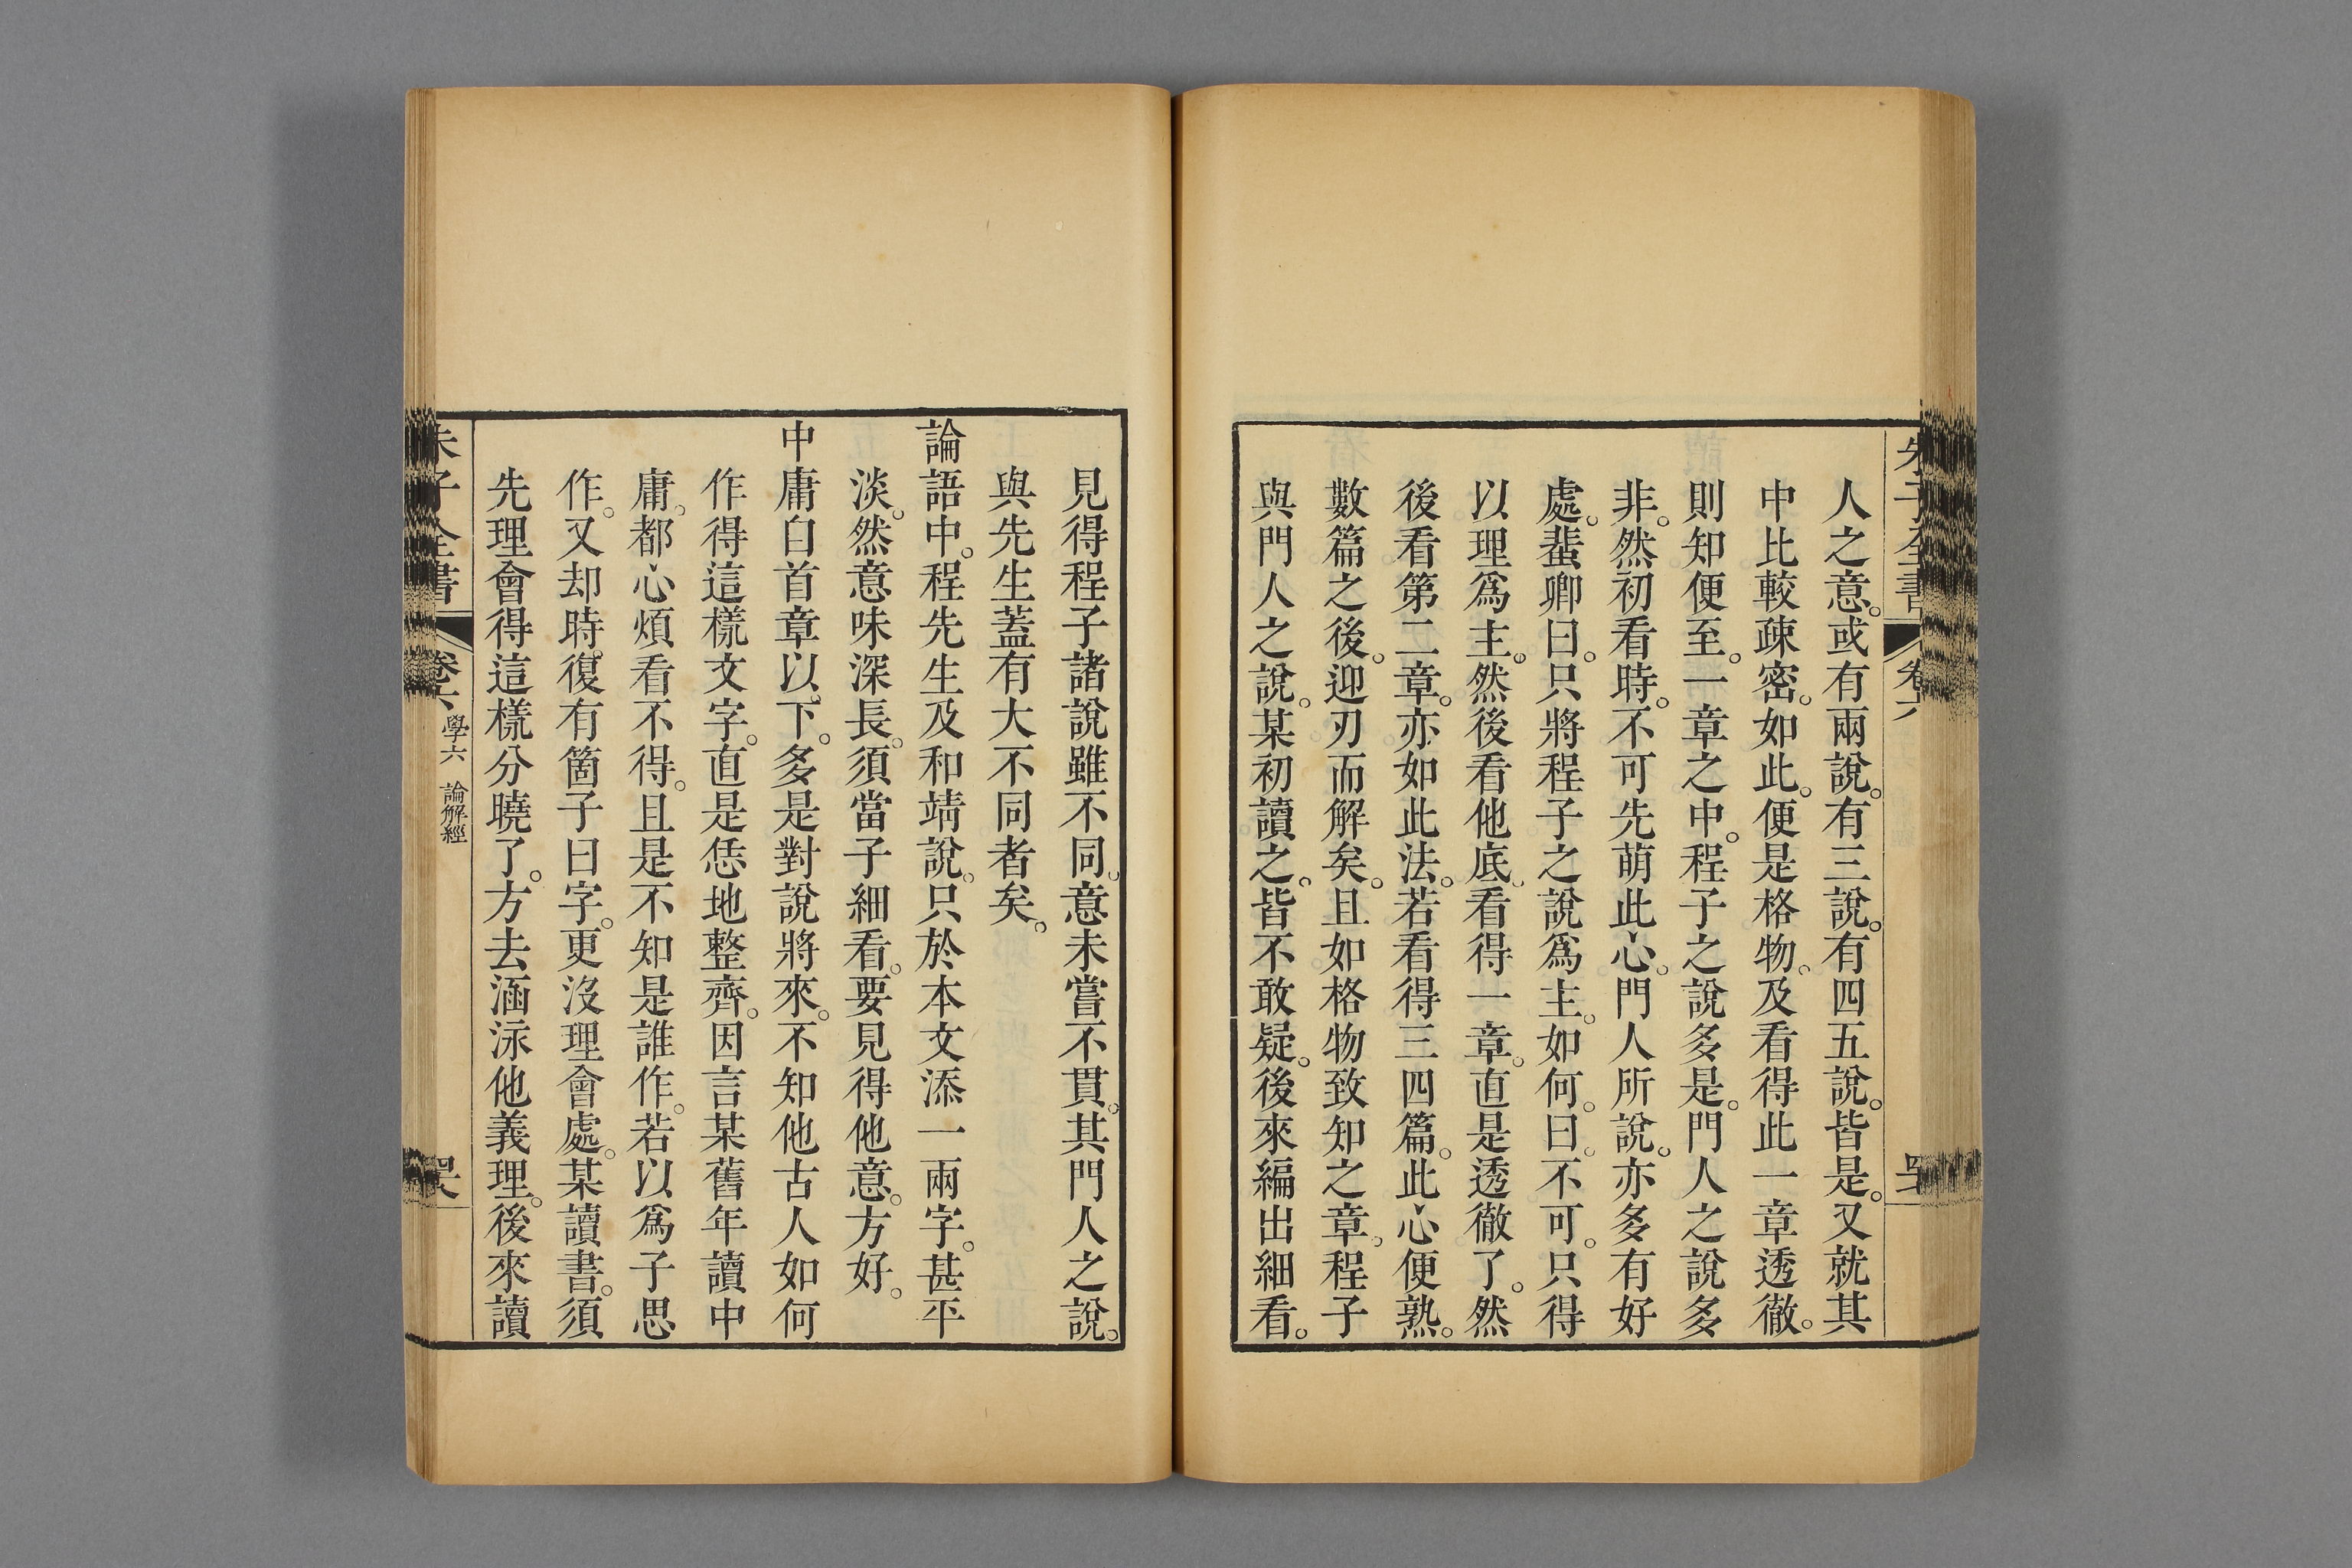 人之意。或有兩說。有三說。有四五說。皆是。又就其
中比較疎密。如此。便是格物。及看得此一章透徹。
則知便至。一章之中。程子之說多是。門人之說多
非。然初看時。不可先萌此心。門人所說。亦多有好
處。蜚卿曰。只將程子之說爲主。如何。曰。不可。只得
以理爲主。然後看他底。看得一章。直是透徹了。然
後看第二章。亦如此法。若看得三四篇。此心便熟。
數篇之後。迎刃而解矣。且如格物致知之章。程子
與門人之說。某初讀之。皆不敢疑。後來編出細看。
見得程子諸說雖不同。意未嘗不貫。其門人之說。
與先生蓋有大不同者矣。
論語中。程先生及和靖說。只於本文添一兩字。甚平
淡。然意味深長。須當子細看。要見得他意。方好。
中庸自首章以下。多是對說將來。不知他古人如何
作得這樣文字。直是恁地整齊。因言某舊年讀中
庸。都心煩看不得。且是不知是誰作。若以爲子思
作。又却時。復有箇子曰字。更沒理會處。某讀書。須
先理會得這樣分曉了。方去涵泳他義理。後來讀
朱子全書
卷六
學六 論解經